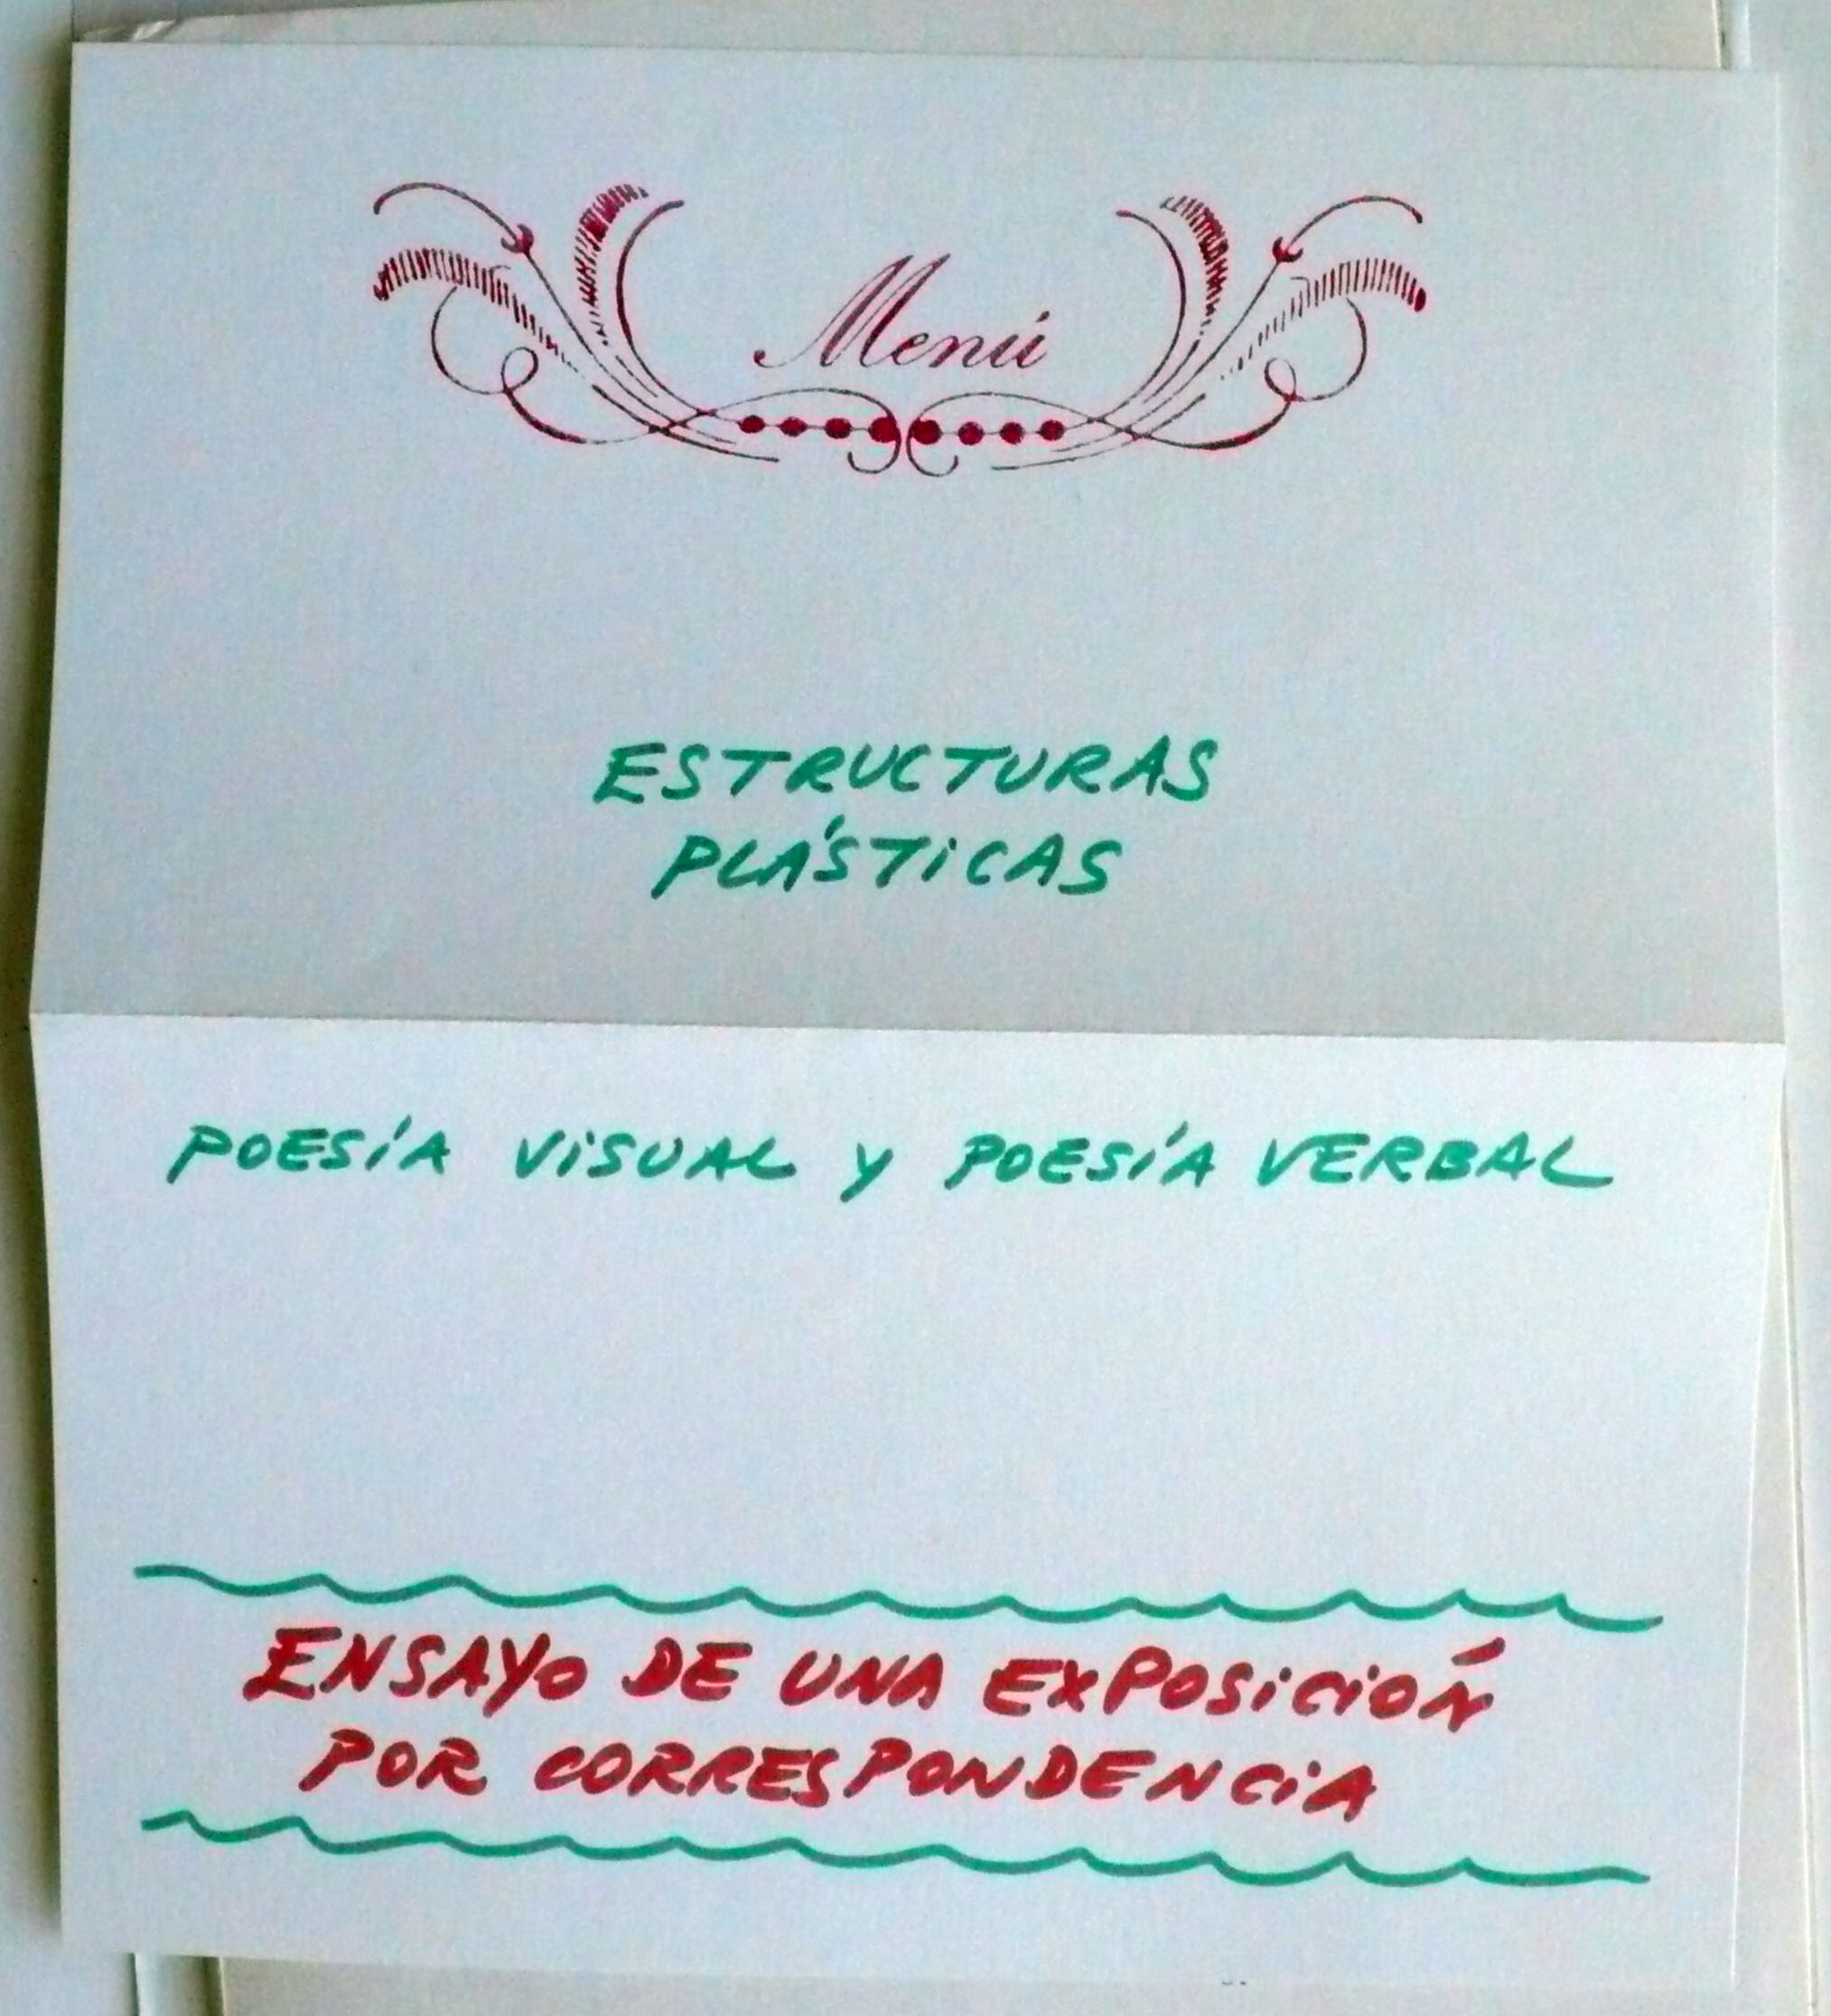 Menú
ESTRUCTURAS
PLÁSTICAS
POESÍA VISUAL Y POESÍA VERBAL
ENSAYO DE UNA EXPOSICIÓN
POR CORRESPONDENCIA